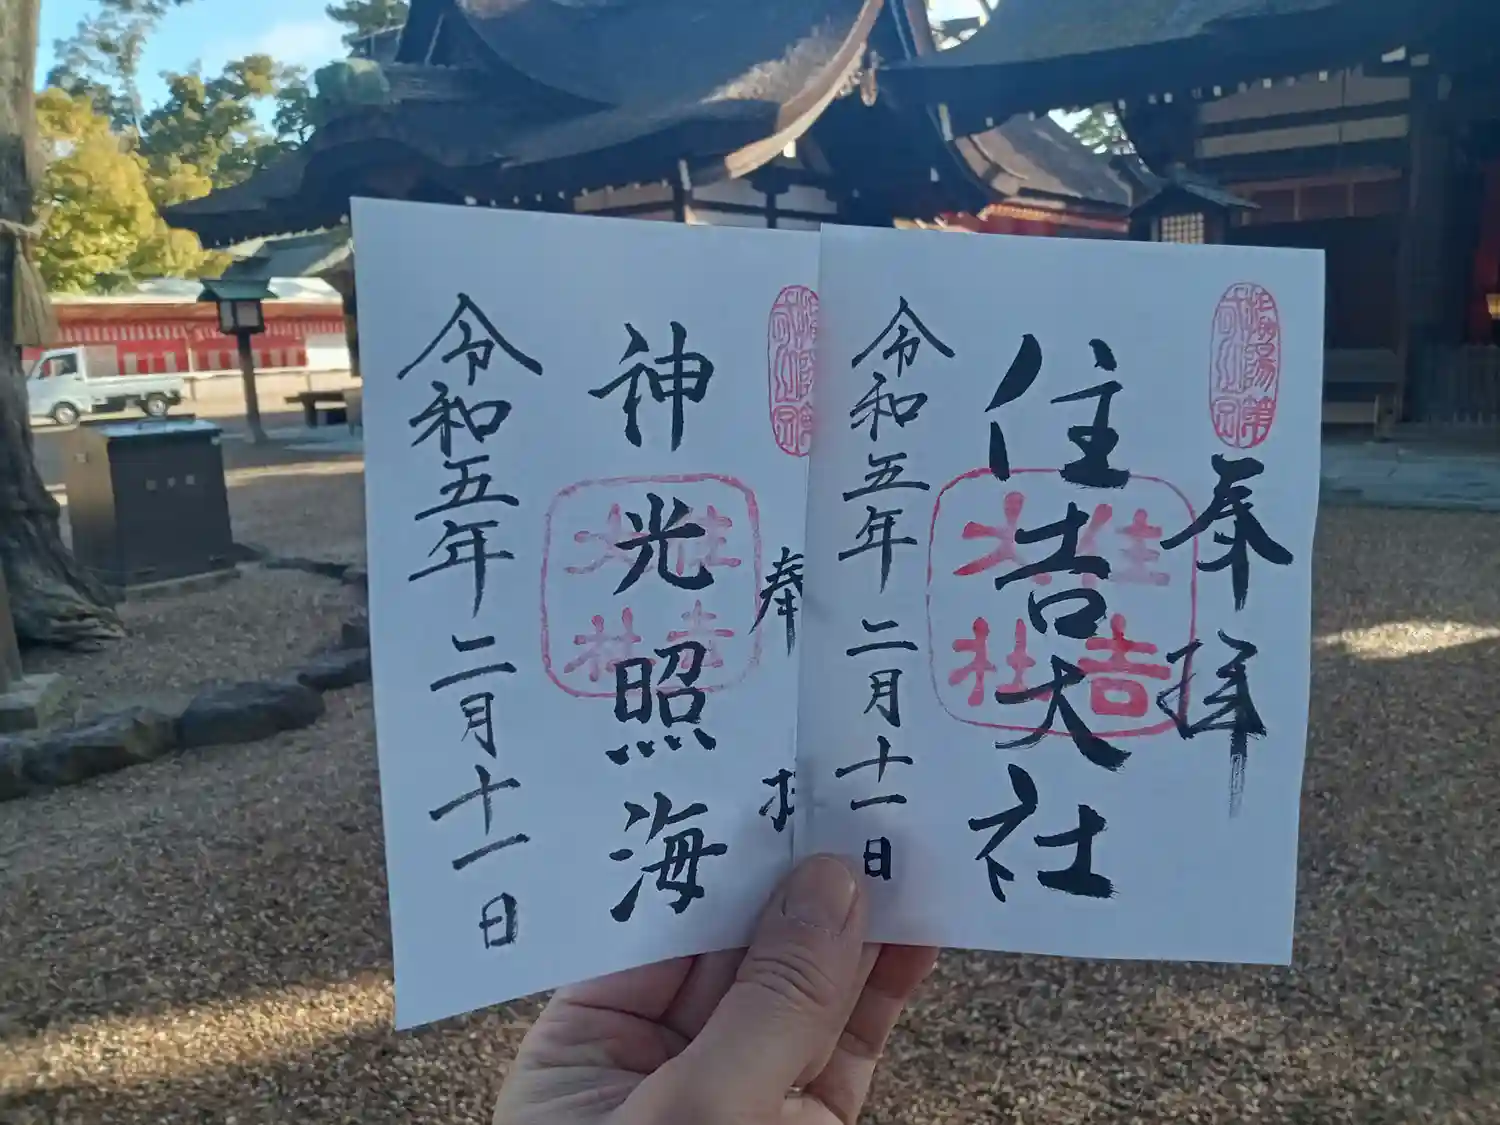 奉拝
住吉大社
住吉大社
令和五年二月十一日
奉
神光照海
住吉大社
令和五年二月十一日